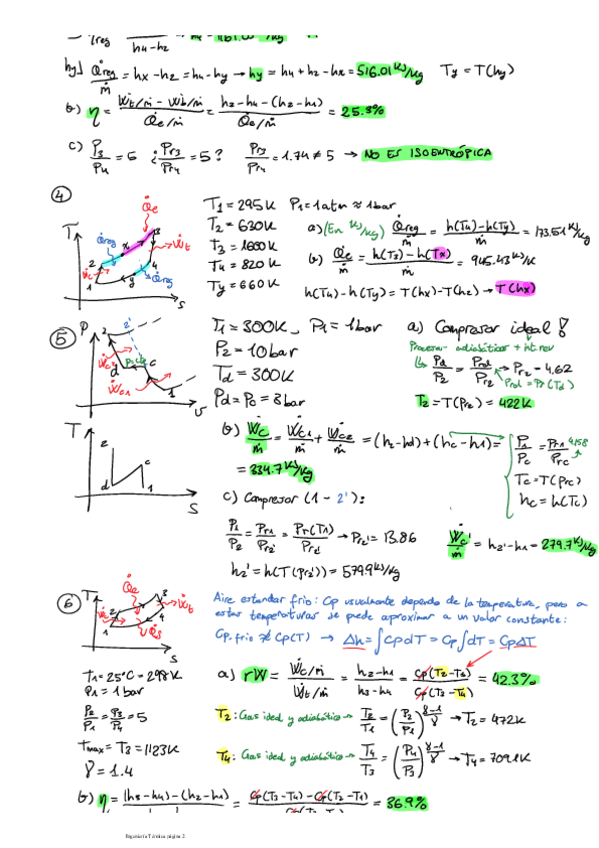 hy] Q̇reg/ṁ = hx-h2 = h4-hy → hy = h4+h2-hx = 516.01 kJ/kg    Ty = T(hy)
b) η = (Ẇt/ṁ - Ẇc/ṁ)/(Q̇e/ṁ) = (h3-h4-(h2-h1))/(Q̇e/ṁ) = 25.3%
c) P3/P4 = 5    ¿Pr3/Pr4 = 5?    Pr3/Pr4 = 1.74 ≠ 5 → NO ES ISOENTRÓPICA
④
T
Q̇e
Q̇reg
Ẇt
Ẇc
Q̇reg
1 2 x 3 4 y
S
T1 = 295K    P1 = 1atm ≈ 1bar
T2 = 630K
T3 = 1600K
T4 = 820K
Ty = 660K
a) (En kJ/kg) Q̇reg/ṁ = (h(T4)-h(Ty))/ṁ = 173.51 kJ/kg
b) Q̇e/ṁ = (h(T3)-h(Tx))/ṁ = 945.43 kJ/K
h(T4)-h(Ty) = T(hx)-T(h2) → T(hx)
⑤
P
2 2' d c 1
Ẇc2
Ẇc1
v
T
2 d c 1
S
T1 = 300K, P1 = 1bar
P2 = 10bar
Td = 300K
Pd = Pc = 3bar
a) Compresor ideal!
Procesos adiabáticos + int. rev
Pd/P2 = Prd/Pr2 → Pr2 = 4.62
Prd = Pr(Td)
T2 = T(Pr2) = 422K
b) Ẇc/ṁ = Ẇc1/ṁ + Ẇc2/ṁ = (h2-hd)+(hc-h1) =
= 334.7 kJ/kg
P1/Pc = Pr1/Prc
Tc = T(Prc)
hc = h(Tc)
c) Compresor (1-2'):
P1/P2 = Pr1/Pr2' = Pr(T1)/Pr2' → Pr2' = 13.86
h2' = h(T(Pr2')) = 579.9 kJ/kg
Ẇc'/ṁ = h2'-h1 = 279.7 kJ/kg
⑥
T
Q̇e
Ẇt
Ẇc
Q̇s
1 2 3 4
S
Aire estandar frio: Cp usualmente depende de la temperatura, pero a
estas temperaturas se puede aproximar a un valor constante:
Cp.frio ≠ Cp(T) → Δh = ∫CpdT = Cp∫dT = CpΔT
T1 = 25°C = 298K
P1 = 1bar
P2/P1 = P3/P4 = 5
Tmax = T3 = 1123K
γ = 1.4
a) rW = (Ẇc/ṁ)/(Ẇt/ṁ) = (h2-h1)/(h3-h4) = Cp(T2-T1)/Cp(T3-T4) = 42.3%
T2: Gas ideal y adiabático → T2/T1 = (P2/P1)^((γ-1)/γ) → T2 = 472K
T4: Gas ideal y adiabático → T4/T3 = (P4/P3)^((γ-1)/γ) → T4 = 709.1K
b) η = (h3-h4)-(h2-h1) = Cp(T3-T4)-Cp(T2-T1) = 36.9%
Ingeniería Térmica página 2